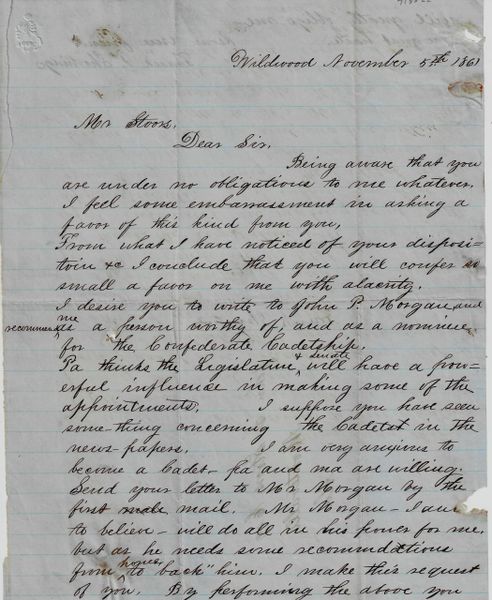 Wildwood November 5th 1861
Mr Stoors,
Dear Sir,
Being aware that you
are under no obligations to me whatever,
I feel some embarrassment in asking a
favor of this kind from you,
From what I have noticed of your disposi-
tion &c I conclude that you will confer so
small a favor on me with alacrity.
I desire you to write to John P. Morgan and
recommend me
as a person worthy of, and as a nominee
for the Confederate Cadetship.
Pa thinks the Legislature & senate will have a pow-
erful influence in making some of the
appointments. I suppose you have seen
some-thing concerning the Cadetst in the
news-papers. I am very anxious to
become a Cadet - pa and ma are willing.
Send your letter to Mr Morgan by the
first male mail. Mr Morgan - I am
to believe - will do all in his power for me,
but as he needs some recommdations
from home "to back" him. I make this request
of you. By performing the above you